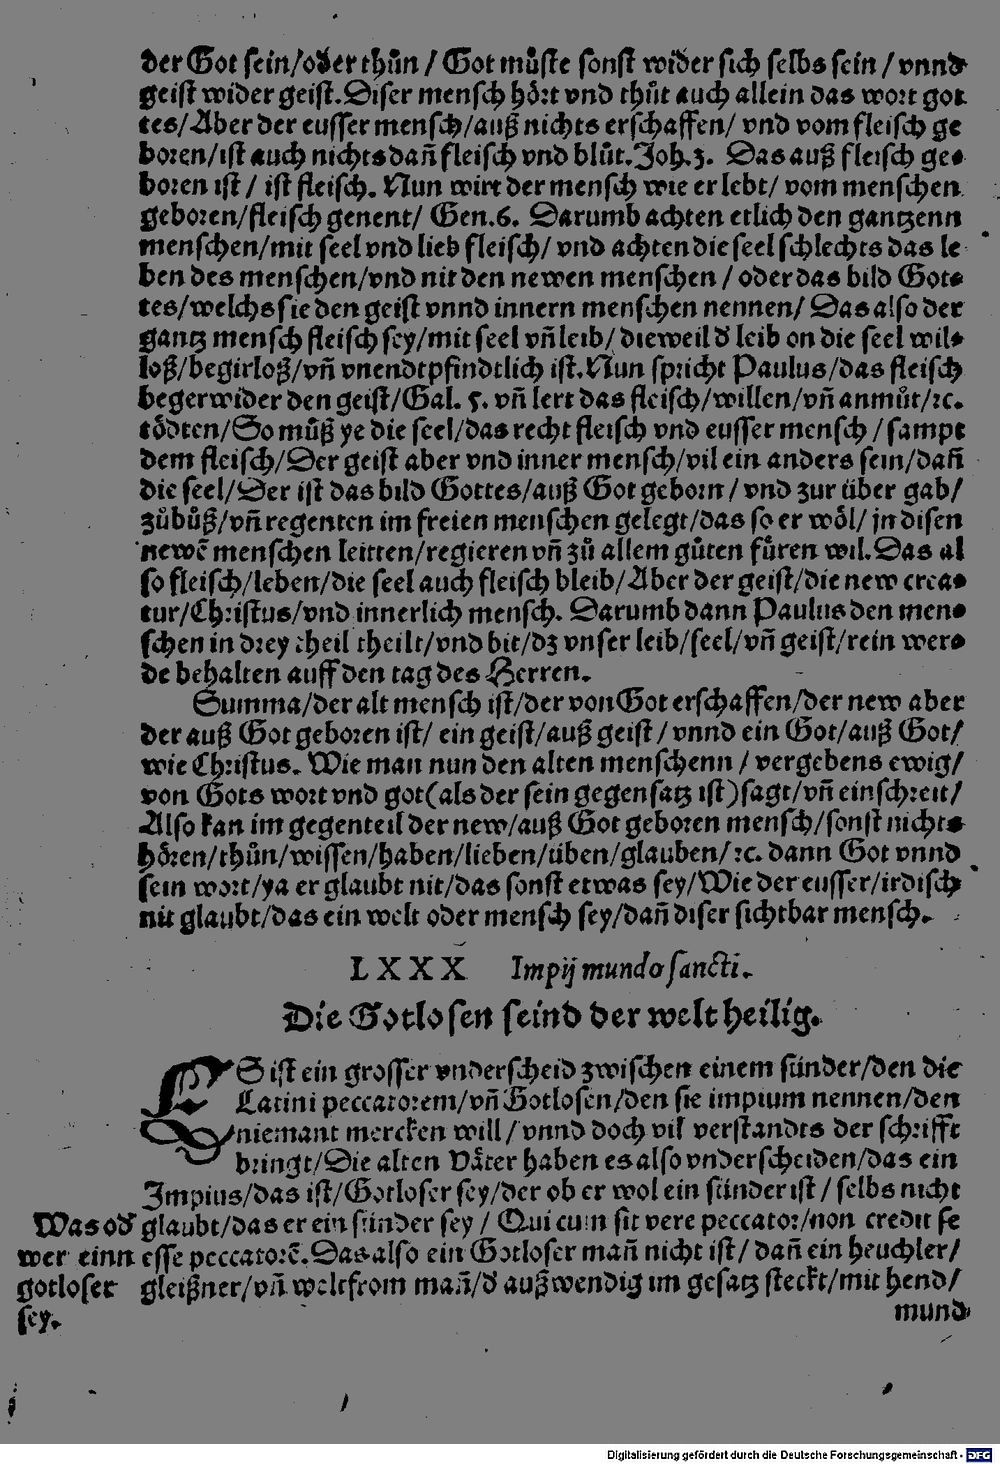 der Got sein/oder thůn / Got můste sonst wider sich selbs sein / vnnd
geist wider geist. Diser mensch hört vnd thůt auch allein das wort got
tes/Aber der eusser mensch/auß nichts erschaffen/ vnd vom fleisch ge
boren/ist auch nichts dañ fleisch vnd blůt. Joh.3. Das auß fleisch ge-
boren ist / ist fleisch. Nun wirt der mensch wie er lebt/ vom menschen
geboren/fleisch genent/ Gen.6. Darumb achten etlich den gantzenn
menschen/mit seel vnd lieb fleisch/ vnd achten die seel schlechts das le-
ben des menschen/vnd nit den newen menschen / oder das bild Got-
tes/welchs sie den geist vnnd innern menschen nennen/ Das also der
gantz mensch fleisch sey/mit seel vñ leib/ dieweil d leib on die seel wil-
loß/begirloß/vñ vnendtpfindtlich ist. Nun spricht Paulus/das fleisch
beger wider den geist/Gal. 5. vñ lert das fleisch/willen/vñ anmůt/ꝛc.
tödten/So můß ye die seel/das recht fleisch vnd eusser mensch / sampt
dem fleisch/Der geist aber vnd inner mensch/vil ein anders sein/dañ
die seel/Der ist das bild Gottes/auß Got geborn / vnd zur über gab/
zůbůß/vñ regenten im freien menschen gelegt/das so er wöl/ jn disen
newẽ menschen leitten/regieren vñ zů allem gůten füren wil. Das al
so fleisch/leben/die seel auch fleisch bleib/Aber der geist/die new crea-
tur/Christus/vnd innerlich mensch. Darumb dann Paulus den men-
schen in drey theil theilt/vnd bit/dz vnser leib/seel/vñ geist/rein wer-
de behalten auff den tag des Herren.
Summa/der alt mensch ist/der von Got erschaffen/der new aber
der auß Got geboren ist/ ein geist/auß geist / vnnd ein Got/auß Got/
wie Christus. Wie man nun den alten menschenn / vergebens ewig/
von Gots wort vnd got(als der sein gegensatz ist)sagt/vñ einschreit/
Also kan im gegenteil der new/auß Got geboren mensch/sonst nichts
hören/thůn/wissen/haben/lieben/üben/glauben/ꝛc. dann Got vnnd
sein wort/ya er glaubt nit/das sonst etwas sey/Wie der eusser/irdisch
nit glaubt/das ein welt oder mensch sey/dañ diser sichtbar mensch.
LXXX Impij mundo sancti.
Die Gotlosen seind der welt heilig.
ES ist ein grosser vnderscheid zwischen einem sünder/den die
Latini peccatorem/vñ Gotlosen/den sie impium nennen/den
niemant mercken will / vnnd doch vil verstandts der schrifft
bringt/Die alten Väter haben es also vnderscheiden/das ein
Impius/das ist/Gotloser sey/der ob er wol ein sünder ist / selbs nicht
glaubt/das er ein sünder sey / Qui cum sit vere peccator/non credit se
esse peccatorẽ. Das also ein Gotloser mañ nicht ist/ dañ ein heuchler/
gleißner/vñ weltfrom mañ/d außwendig im gesatz steckt/mit hend/
mund
Was od
wer einn
gotloser
sey.
Digitalisierung gefördert durch die Deutsche Forschungsgemeinschaft - DFG